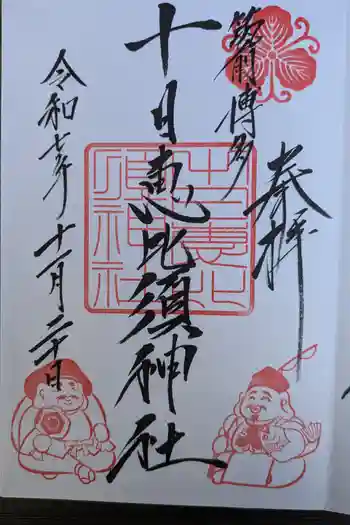 筑前博多
奉拝
十日恵比須神社
十日恵比須神社
令和七年十一月二十日